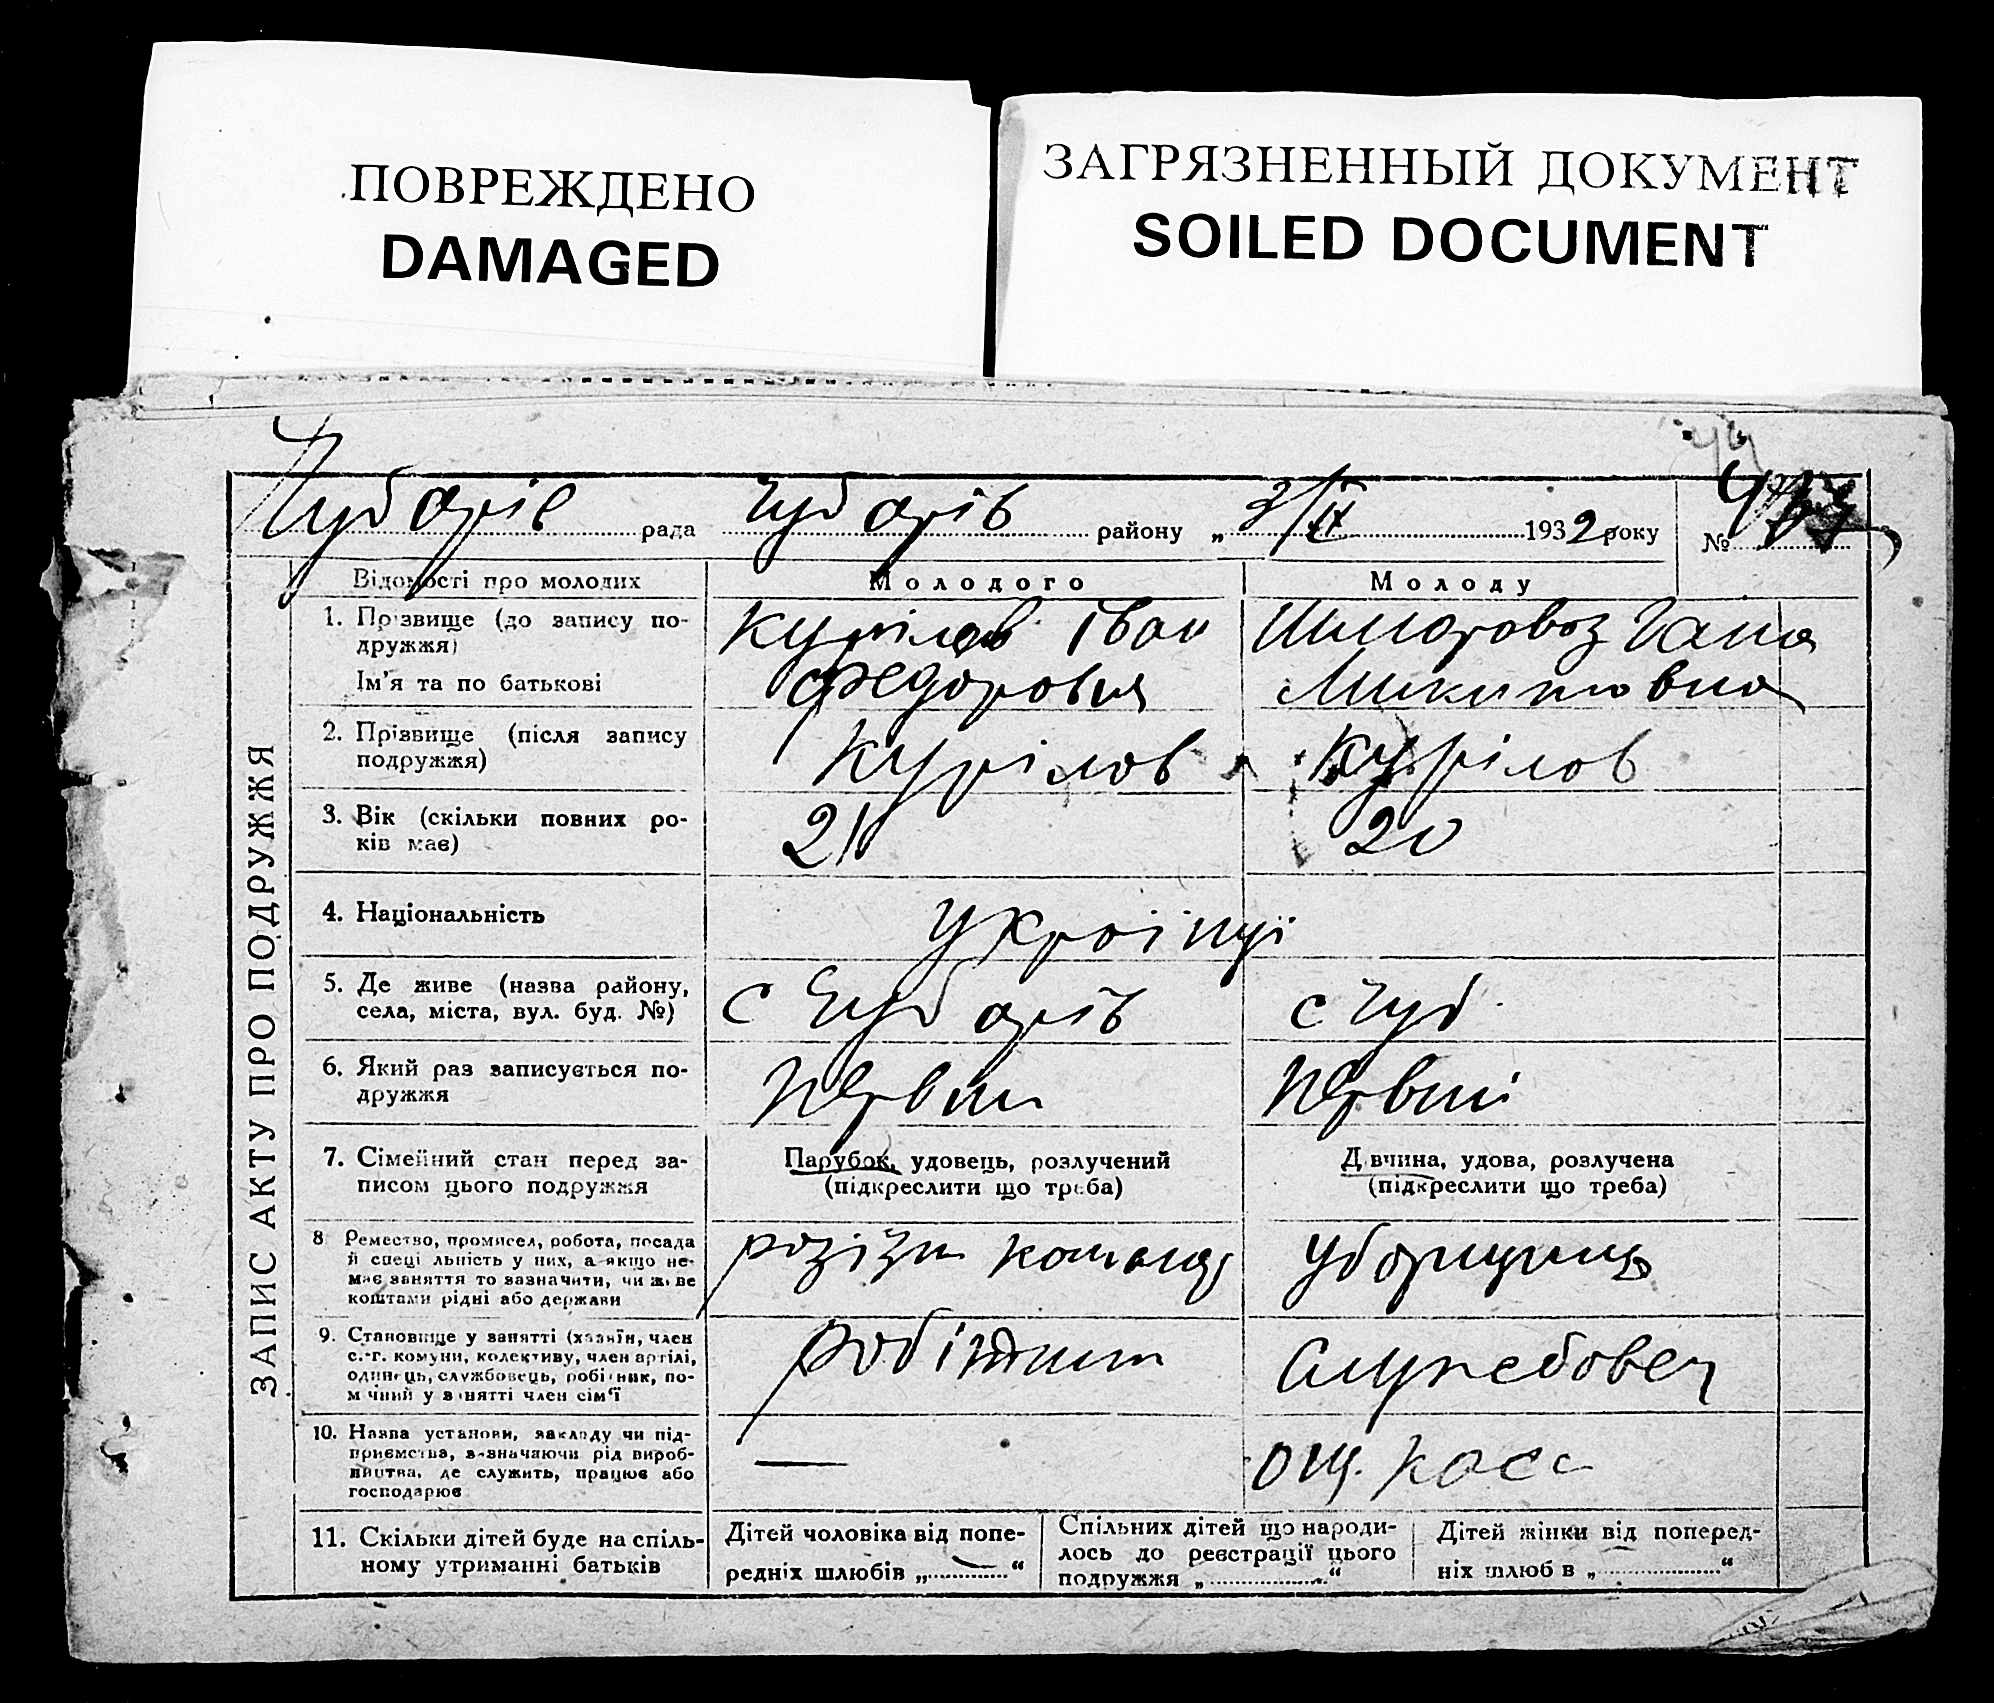 ПОВРЕЖДЕНО
DAMAGED
ЗАГРЯЗНЕННЫЙ ДОКУМЕНТ
SOILED DOCUMENT
Чубарів рада Чубарів району „ 3/II 1932 року №
ЗАПИС АКТУ ПРО ПОДРУЖЖЯ
Відомості про молодих Молодого Молоду
1. Прізвище (до запису по-
дружжя)
Ім'я та по батькові
Курілов Іван
Федоровия
Гана
Микитовна
2. Прізвище (після запису
подружжя)
Курілов Курілов
3. Вік (скільки повних ро-
ків має)
21 20
4. Національність
Україиці
5. Де живе (назва району,
села, міста, вул. буд. №)
с Чубарів с Чуб.
6. Який раз записується по-
дружжя
Первий Первий
7. Сімейний стан перед за-
писом цього подружжя
Парубок, удовець, розлучений
(підкреслити що треба)
Дівчина, удова, розлучена
(підкреслити що треба)
8 Ремество, промисел, робота, посада
й спеціальність у них, а якщо не-
має заняття то зазначити, чи живе
коштами рідні або держави
розізн команд Уборщиця
9. Становище у занятті (хазяїн, член
с.-г. комуни, колективу, член артілі,
одинець, службовець, робітник, по-
мічний у занятті член сім'ї
робітник Служебовец
10. Назва установи, закладу чи під-
приємства, зазначаючи рід вироб-
ництва, де служить, працює або
господарює
— ощ. касс
11. Скільки дітей буде на спіль-
ному утриманні батьків
Дітей чоловіка від попе-
редніх шлюбів „ — “
Спільних дітей що народи-
лось до реєстрації цього
подружжя „ “
Дітей жінки від поперед-
ніх шлюбів „ “